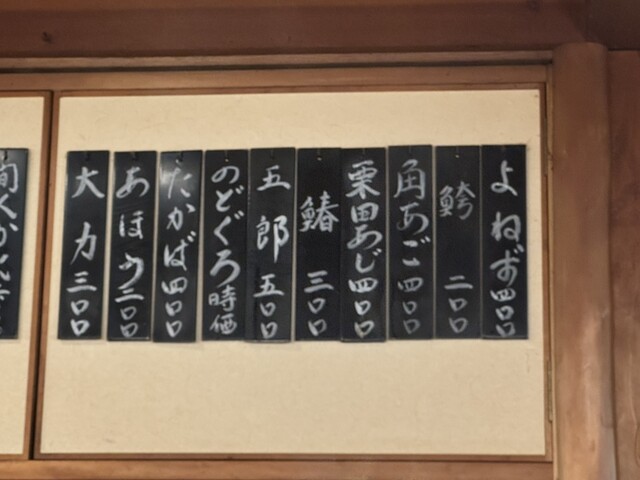 よねず四〇〇
鮬二〇〇
角あご四〇〇
栗田あじ四〇〇
鰆三〇〇
五郎五〇〇
のどぐろ時価
たかば四〇〇
あほう三〇〇
大力三〇〇